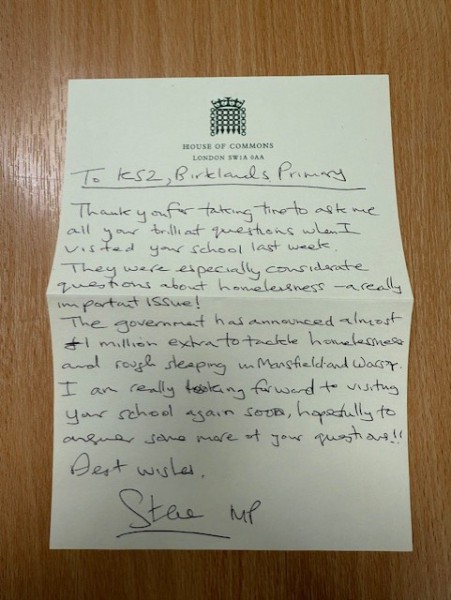 HOUSE OF COMMONS
LONDON SW1A 0AA
To KS2, Birklands Primary
Thank you for taking time to ask me
all your brilliant questions when I
visited your school last week.
They were especially considerate
questions about homelessness - a really
important issue!
The government has announced almost
£1 million extra to tackle homelessness
and rough sleeping in Mansfield and Warsop.
I am really looking forward to visiting
your school again soon, hopefully to
answer some more of your questions!!
Best wishes,
Steve MP